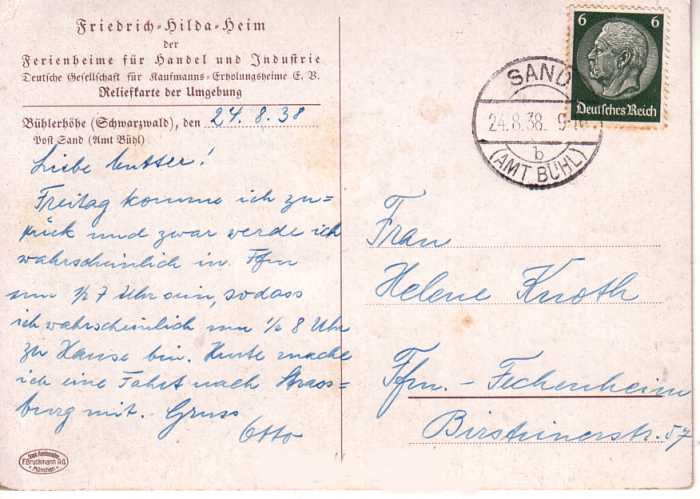 Friedrich-Hilda-Heim
der
Ferienheime für Handel und Industrie
Deutsche Gesellschaft für Kaufmanns-Erholungsheime E. V.
Reliefkarte der Umgebung
Bühlerhöhe (Schwarzwald), den 24. 8. 38
Post Sand (Amt Bühl)
Liebe Mutter!
Freitag komme ich zu=
rück und zwar werde ich
wahrscheinlich in Ffm
um ½7 Uhr sein, sodass
ich wahrscheinlich um ½ 8 Uhr
zu Hause bin. Heute mache
ich eine Fahrt nach Strass=
burg mit. Gruss
Otto
F. Bruckmann AG.
München
6 6
Deutsches Reich
SAND
24.8.38. 9-
b
(AMT BÜHL)
Frau
Helene Knoth
Ffm. - Fechenheim
Birsteinerstr. 57